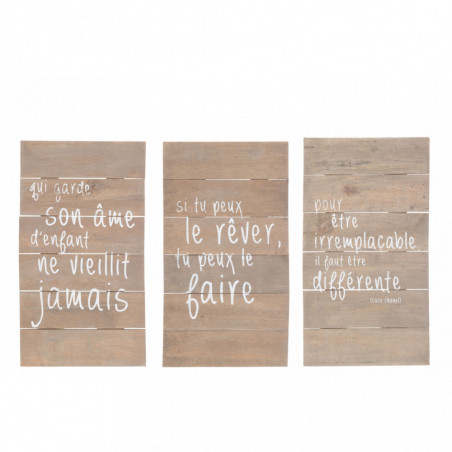 qui garde
son âme
d'enfant
ne vieillit
jamais
si tu peux
le rêver,
tu peux le
faire
pour
être
irremplaçable
il faut être
différente
(coco chanel)